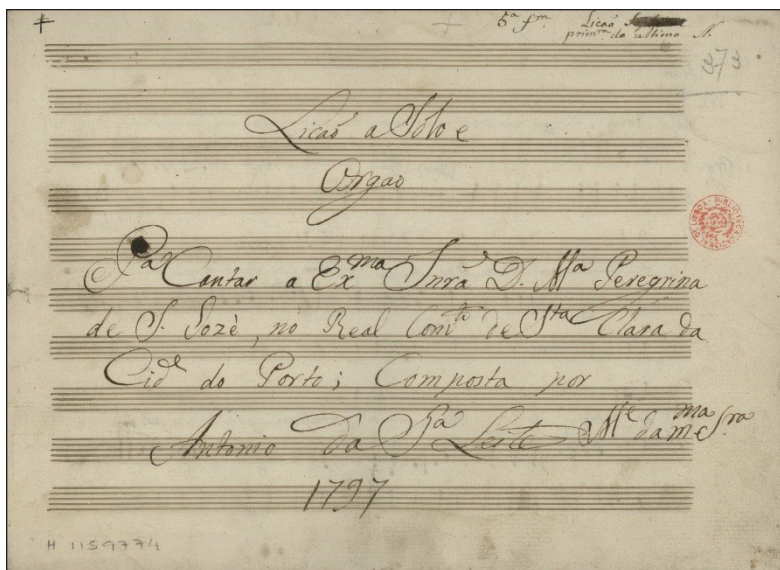 5ª frª.
Licaõ
primrª. do ultimo N.
373
Licaõ a Sólo e
Orgao
Pª Cantar a Exma Snrã D. Mª Peregrina
de S. Jozè, no Real Convto de Sta Clara da
Cidᵉ do Porto; Composta por
Antonio da Sª Leite Mᵉ da mma Sra.
1797
H 1159774